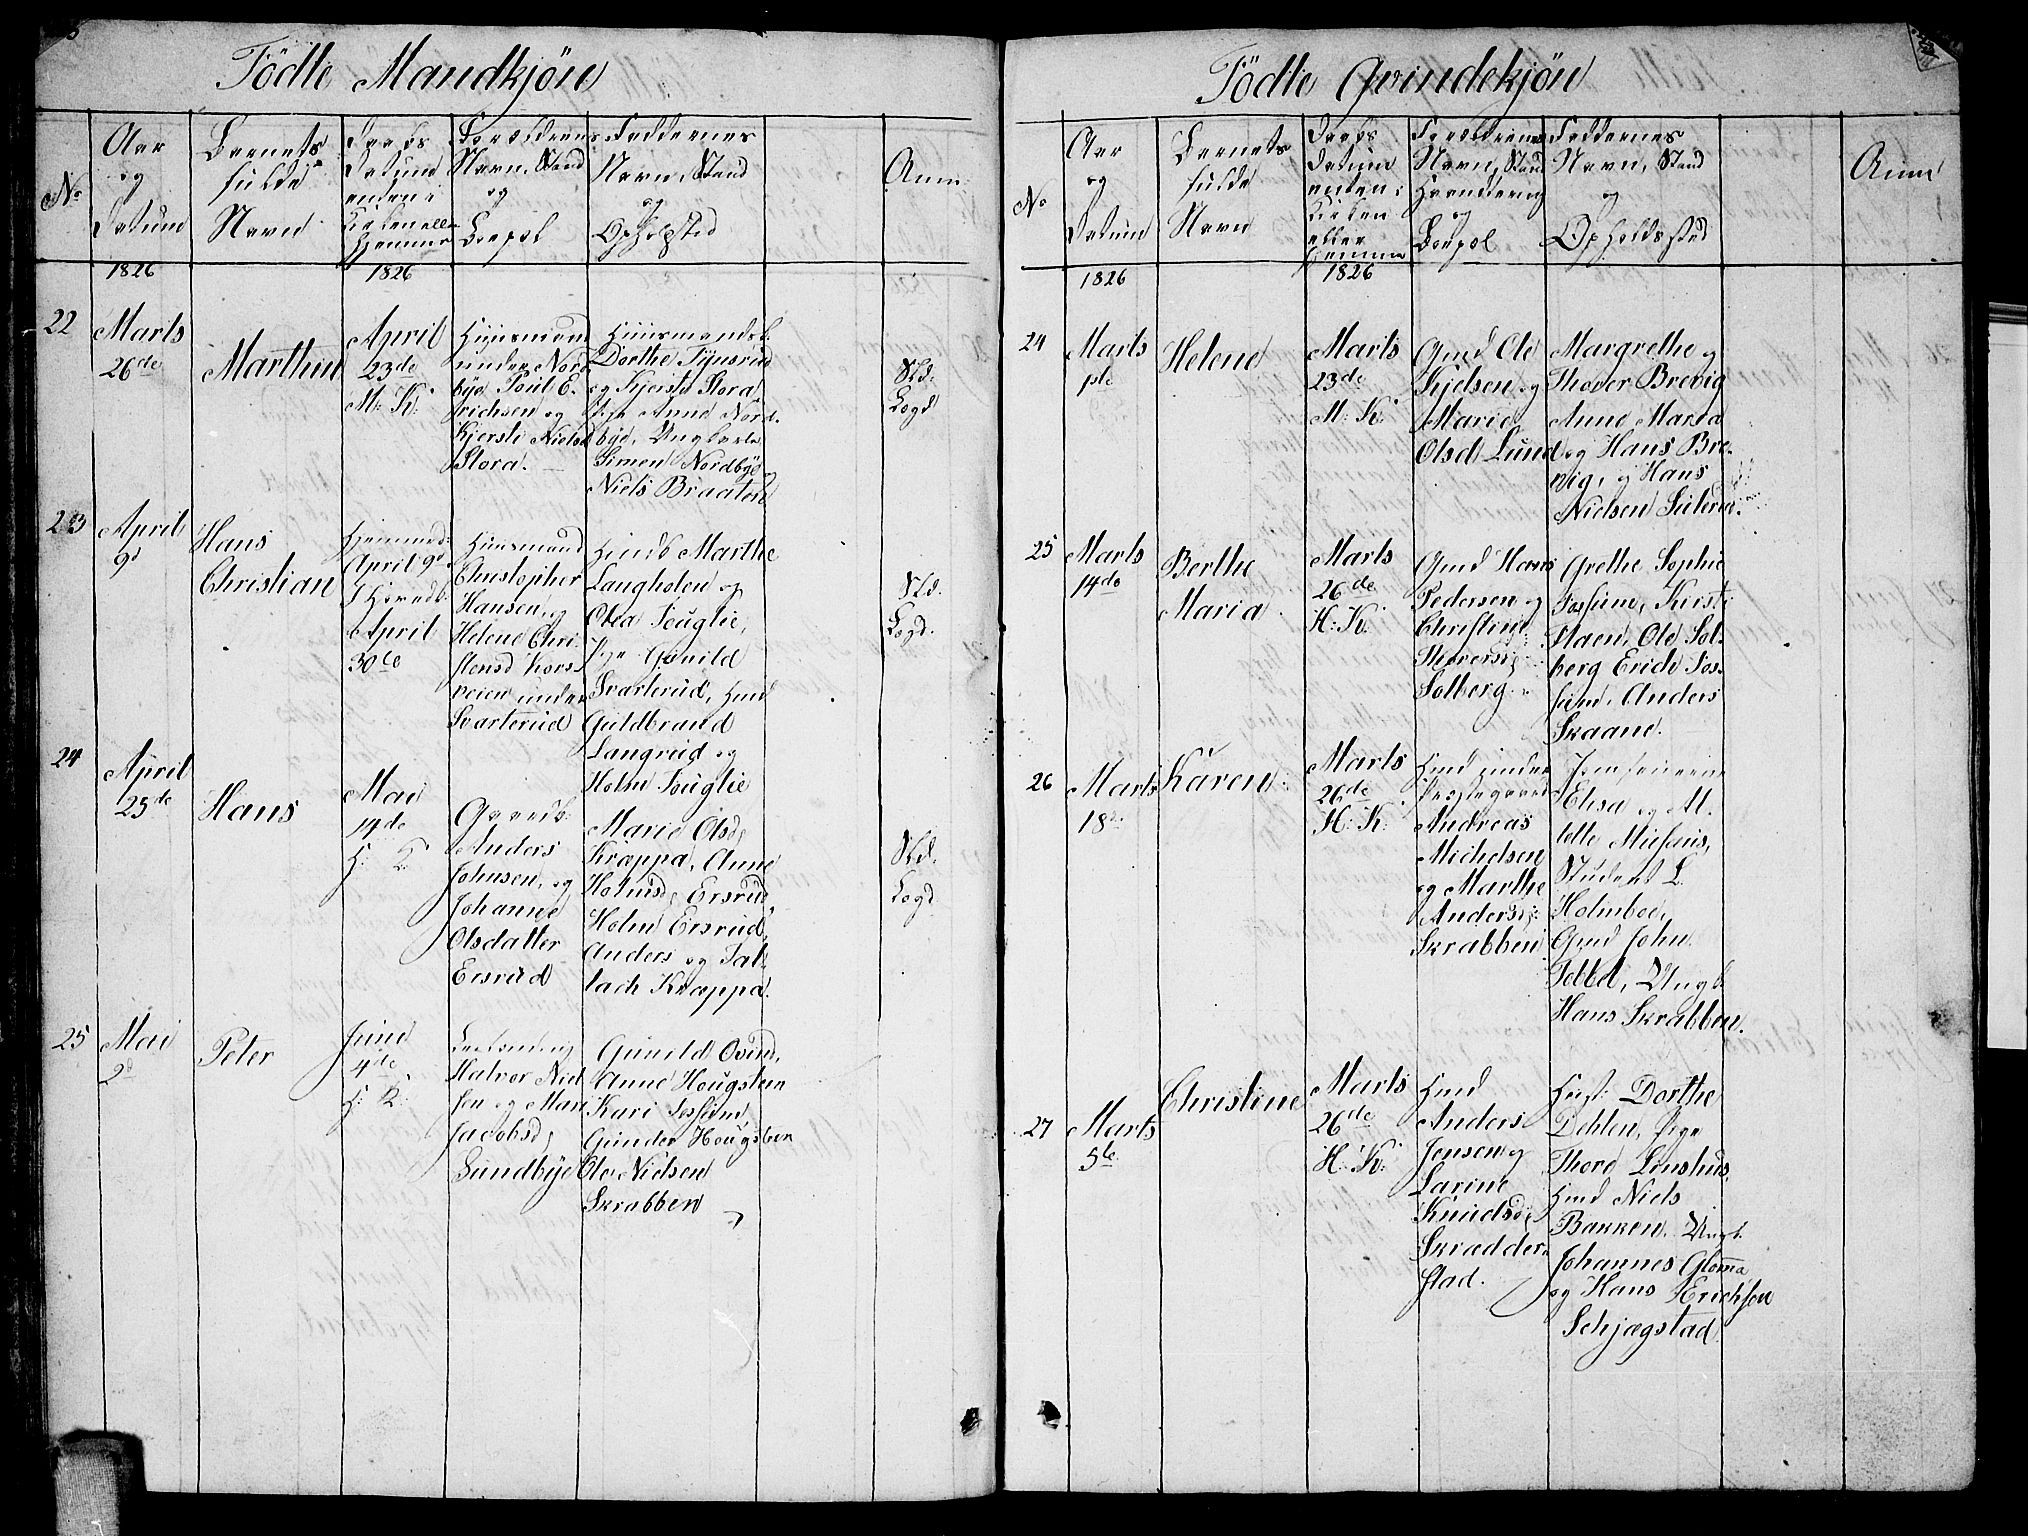 Födte Mandkjön
No
Aar
og
Datum
Barnets
fulde
Navn
Daabs
Datum
enten i
Kirken eller
hjemme
Forældrenes
Navn, Stand
og
Boepæl
Faddernes
Navn, Stand
og
Opholdsted
Anm:
1826
1826
22
Marts
26de
Marthin
April
23de
M: K:
Huusmand
under Nord
bye Poul E-
richsen og
Kjersti Nielsd
Stora.
Huusmandsk.
Dorthe Tynsrud
og Kjersti Stora
Pige Anne Nord-
bye, Ungkarle
Simen Nordbye og
Niels Braaten
Sld.
Lægd
23
April
9d
Hans
Christian
Hjemmed:
April 9d
April
30te
Huusmand
Christopher
Hansen, og
Helene Chri-
stensd Kors-
veien under
Svarterud
Hmdk Marthe
Langholen og
Olea Fouglie,
Pige Gunild
Svarterud, Hmd
Guldbrand
Langrud og
Holm Fouglie
Sld.
Lægd.
24
April
25de
Hans
Mai
14de
H: K
Gaardb:
Anders
Johnsen, og
Johanne
Olsdatter
Ersrud
Marie Olsd,
Kræppa, Anne
Holmsd, Ersrud,
Holm Ersrud,
Anders og Tal-
lach Kræppa.
Sld.
Lægd
25
Mai
2d
Peter
Juni
4de
H: K:
Halvor Niel
sen og Mari
Jacobsd,
Sundbye
Gunild Osund,
Anne Hougsteen
Kari Fossum,
Gunder Hougsteen
Ole Nielsen
Skrabben
Födte Qvindekjön
No
Aar
og
Datum
Barnets
fulde
Navn
Daabs
Datum
enten i
Kirken
eller
hjemme
Forældrenes
Navn, Stand
Haandtering
og
Boepæl
Faddernes
Navn, Stand
og
Opholdssted
Anm
1826
1826
24
Marts
1ste
Helene
Marts
23de
M: K:
Gmd Ole
Kjelsen og
Marie
Olsd Lund
Margrethe og
Thover Brevig
Anne Maria
og Hans Bre-
vig, og Hans
Nielsen Sulerud.
25
Marts
14de
Berthe
Maria
Marts
26de
H: K:
Gmd Hans
Pedersen og
Christine
Thoversd,
Solberg.
Grethe Sophie
Fossum, Kirsti
Staen, Ole Sol-
berg Erich Fos-
sum, Anders
Skaane.
26
Marts
18de
Karen
Marts
26de
H: K:
Hmd under
Præstegaard
Andreas
Michelsen
og Marthe
Andersd:
Skrabben
Jomfruerne
Elisa og M-
lette Musæus,
Student L.
Holmboe,
Gmd John
Tebbel, Ungk.
Hans Skrabben.
27
Marts
5te
Christine
Marts
26de
H: K:
Hmd
Anders
Jensen og
Larine
Knudsd,
Skrædder-
stad.
Hust: Dorthe
Dehlen, Pige
Thore Lonshus,
Hmd Niels
Bakken, Ungk.
Johannes Glomma
og Hans Erichsen
Schjægstad